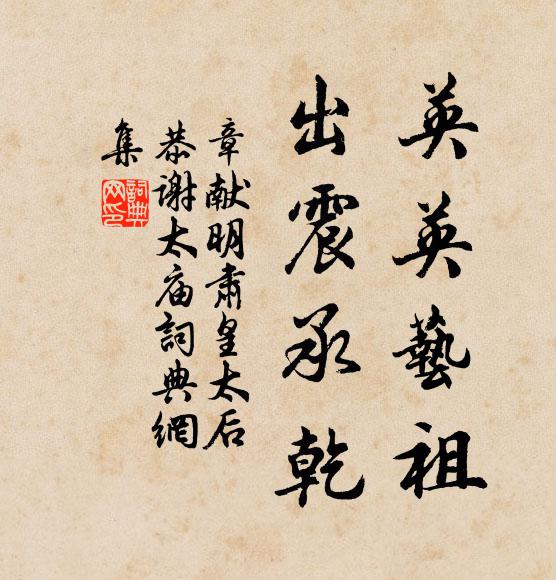 英英藝祖
出震承乾
章献明肅皇太后
恭谢太庙詞典網
集
詞典网印